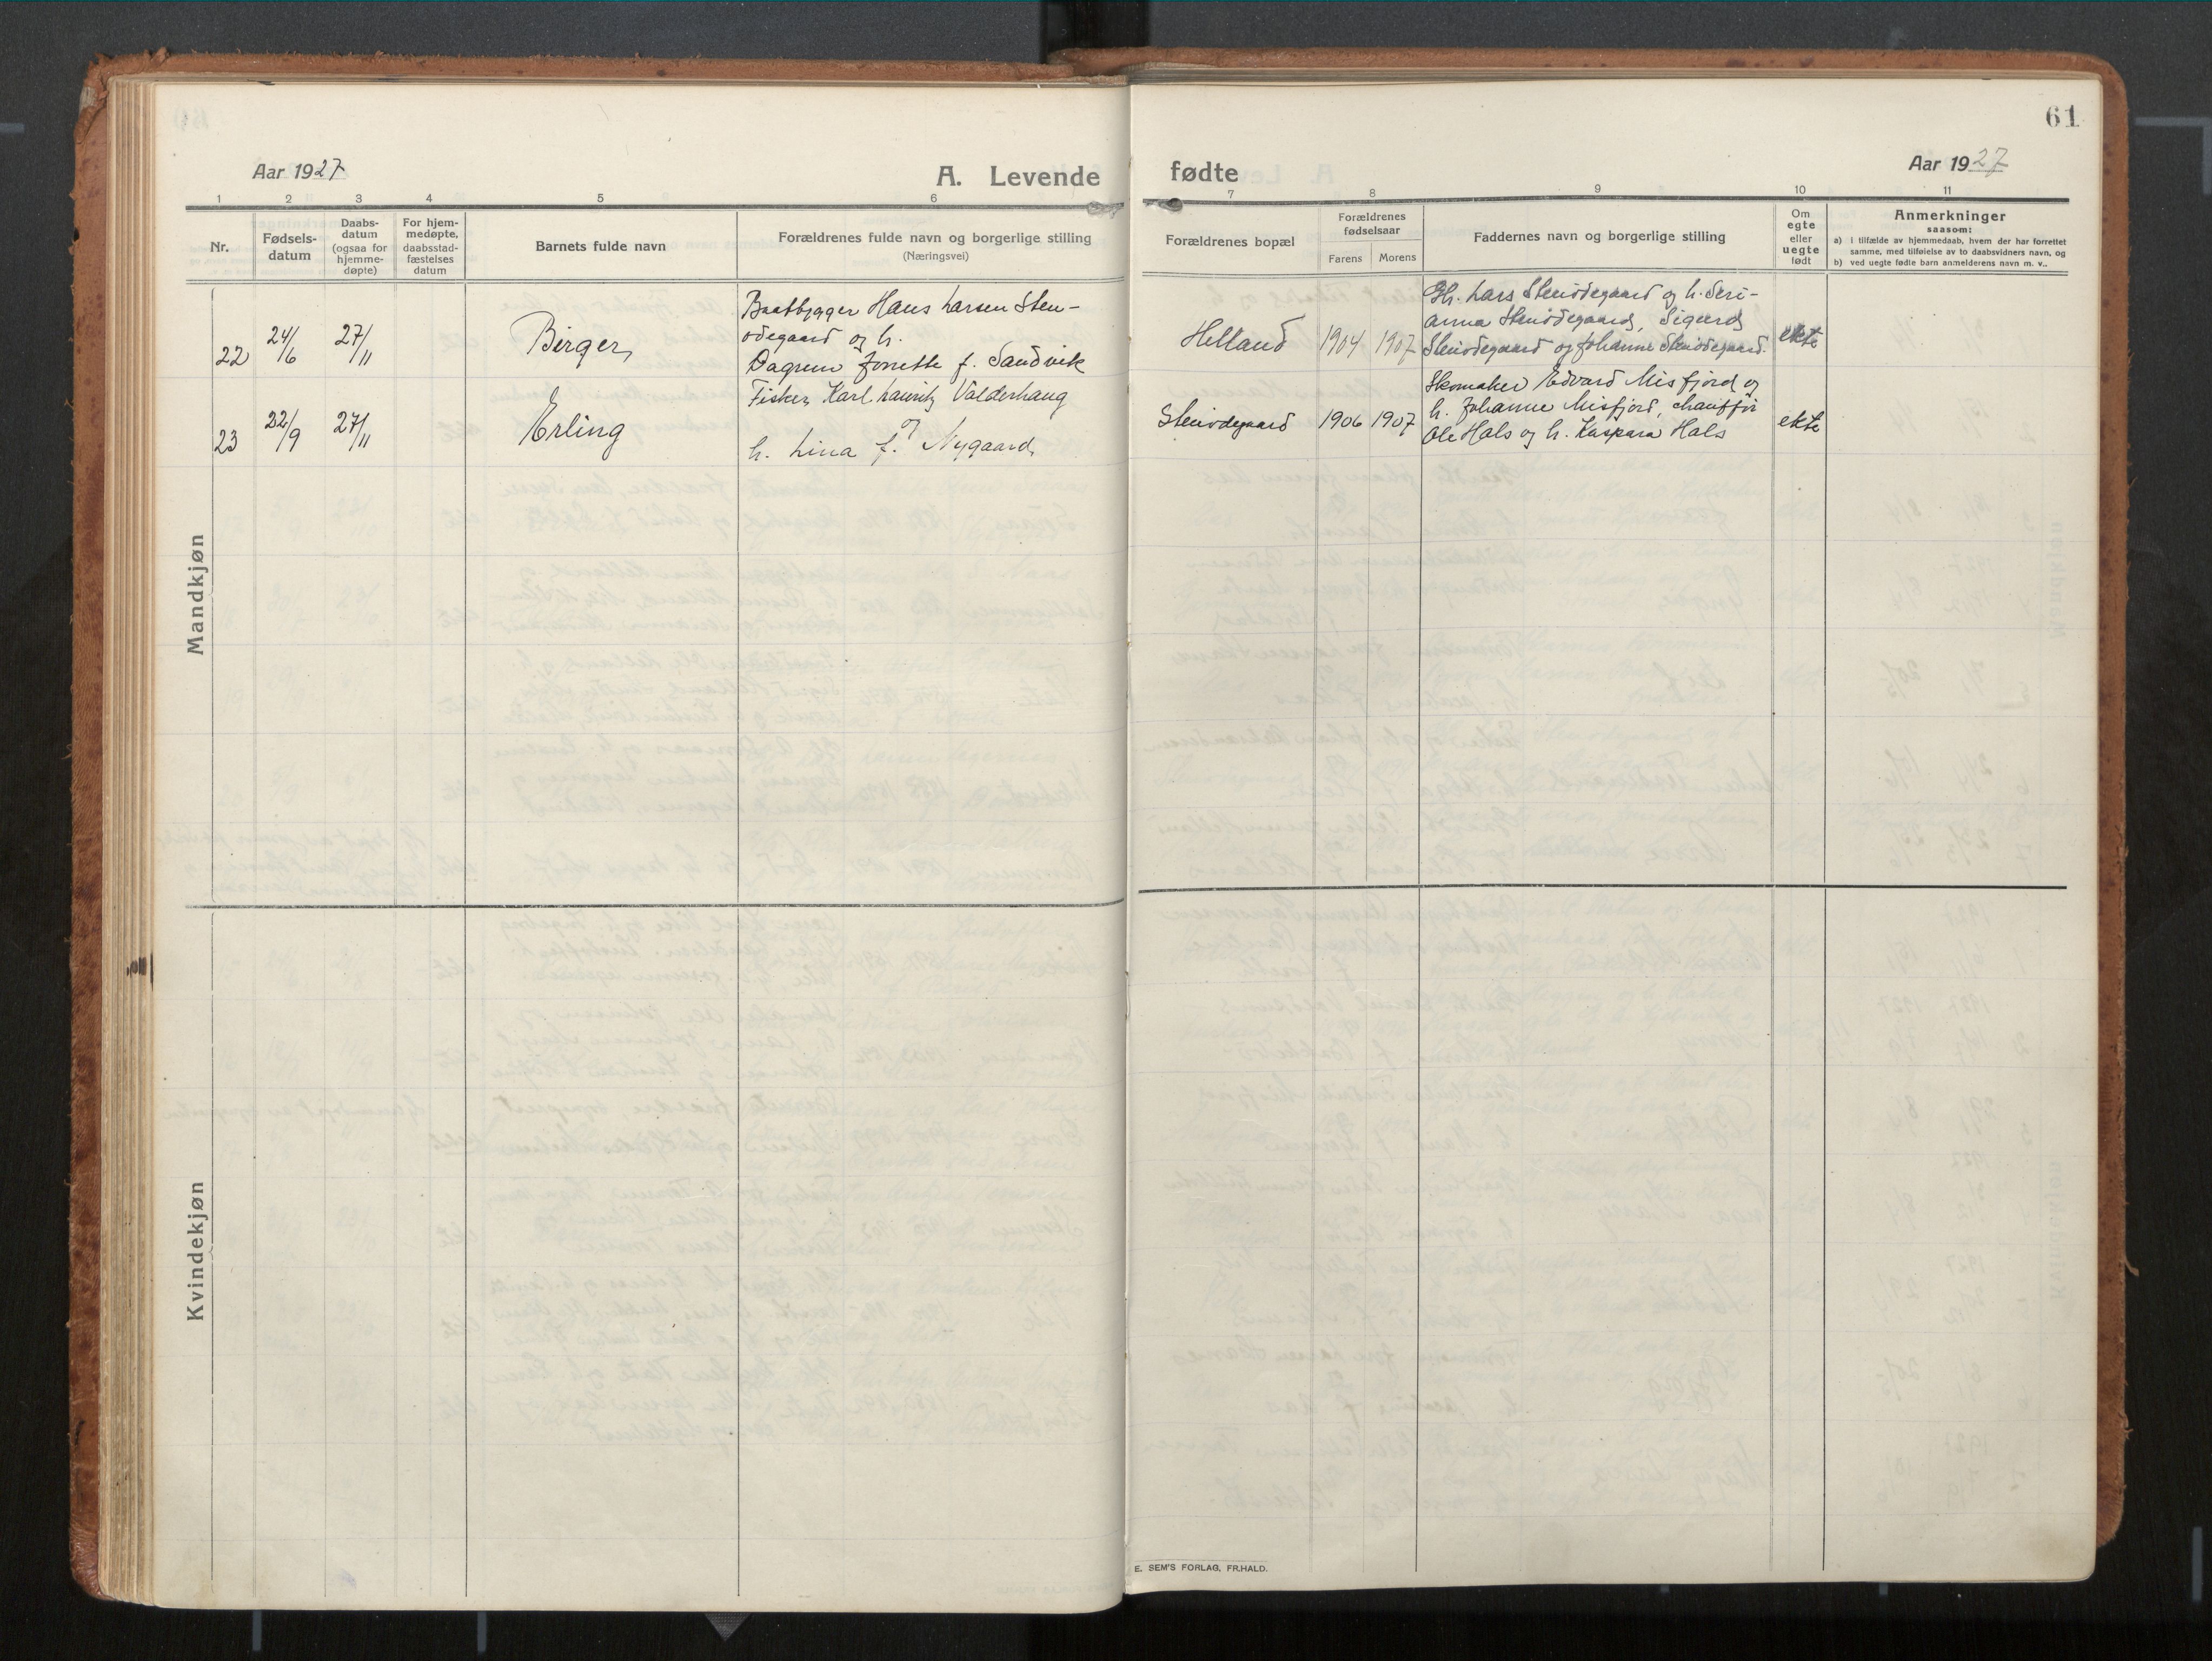 61
Aar 1927
A. Levende
fødte
Aar 1927
1 2 3 4 5 6 7 8 9 10 11
Nr.
Fødsels-
datum
Daabs-
datum
(ogsaa for
hjemme-
døpte)
For hjem-
medøpte,
daabsstad-
fæstelses
datum
Barnets fulde navn
Forældrenes fulde navn og borgerlige stilling
(Næringsvei)
Forældrenes bopæl
Forældrenes
fødselsaar
Farens
Morens
Faddernes navn og borgerlige stilling
Om
egte
eller
uegte
født
Anmerkninger
saasom:
a) i tilfælde av hjemmedaab, hvem der har forrettet
samme, med tilføielse av to daabsvidners navn, og
b) ved uegte fødte barn anmelderens navn m. v..
Mandkjøn
22
24/6
27/11
Birger
Baatbygger Hans Larsen Sten-
ødegaard og h.
Dagrun Jonette f. Sandvik
Helland
1904
1907
Gh. Lars Stenødegaard og h. Seri-
anna Stenødegaard, Sigurd
Stenødegaard og Johanne Stenødegaard.
ekte
23
22/9
27/11
Erling
Fisker Karl Lauritz Valderhaug
og
h. Lina f. Nygaard
Stenødegaard
1906
1907
Skomaker Edvard Misfjord og
h. Johanne Misfjord, chauffør
Ole Hals og h. Kaspara Hals
ekte
Kvindekjøn
E. SEM'S FORLAG, FR.HALD.